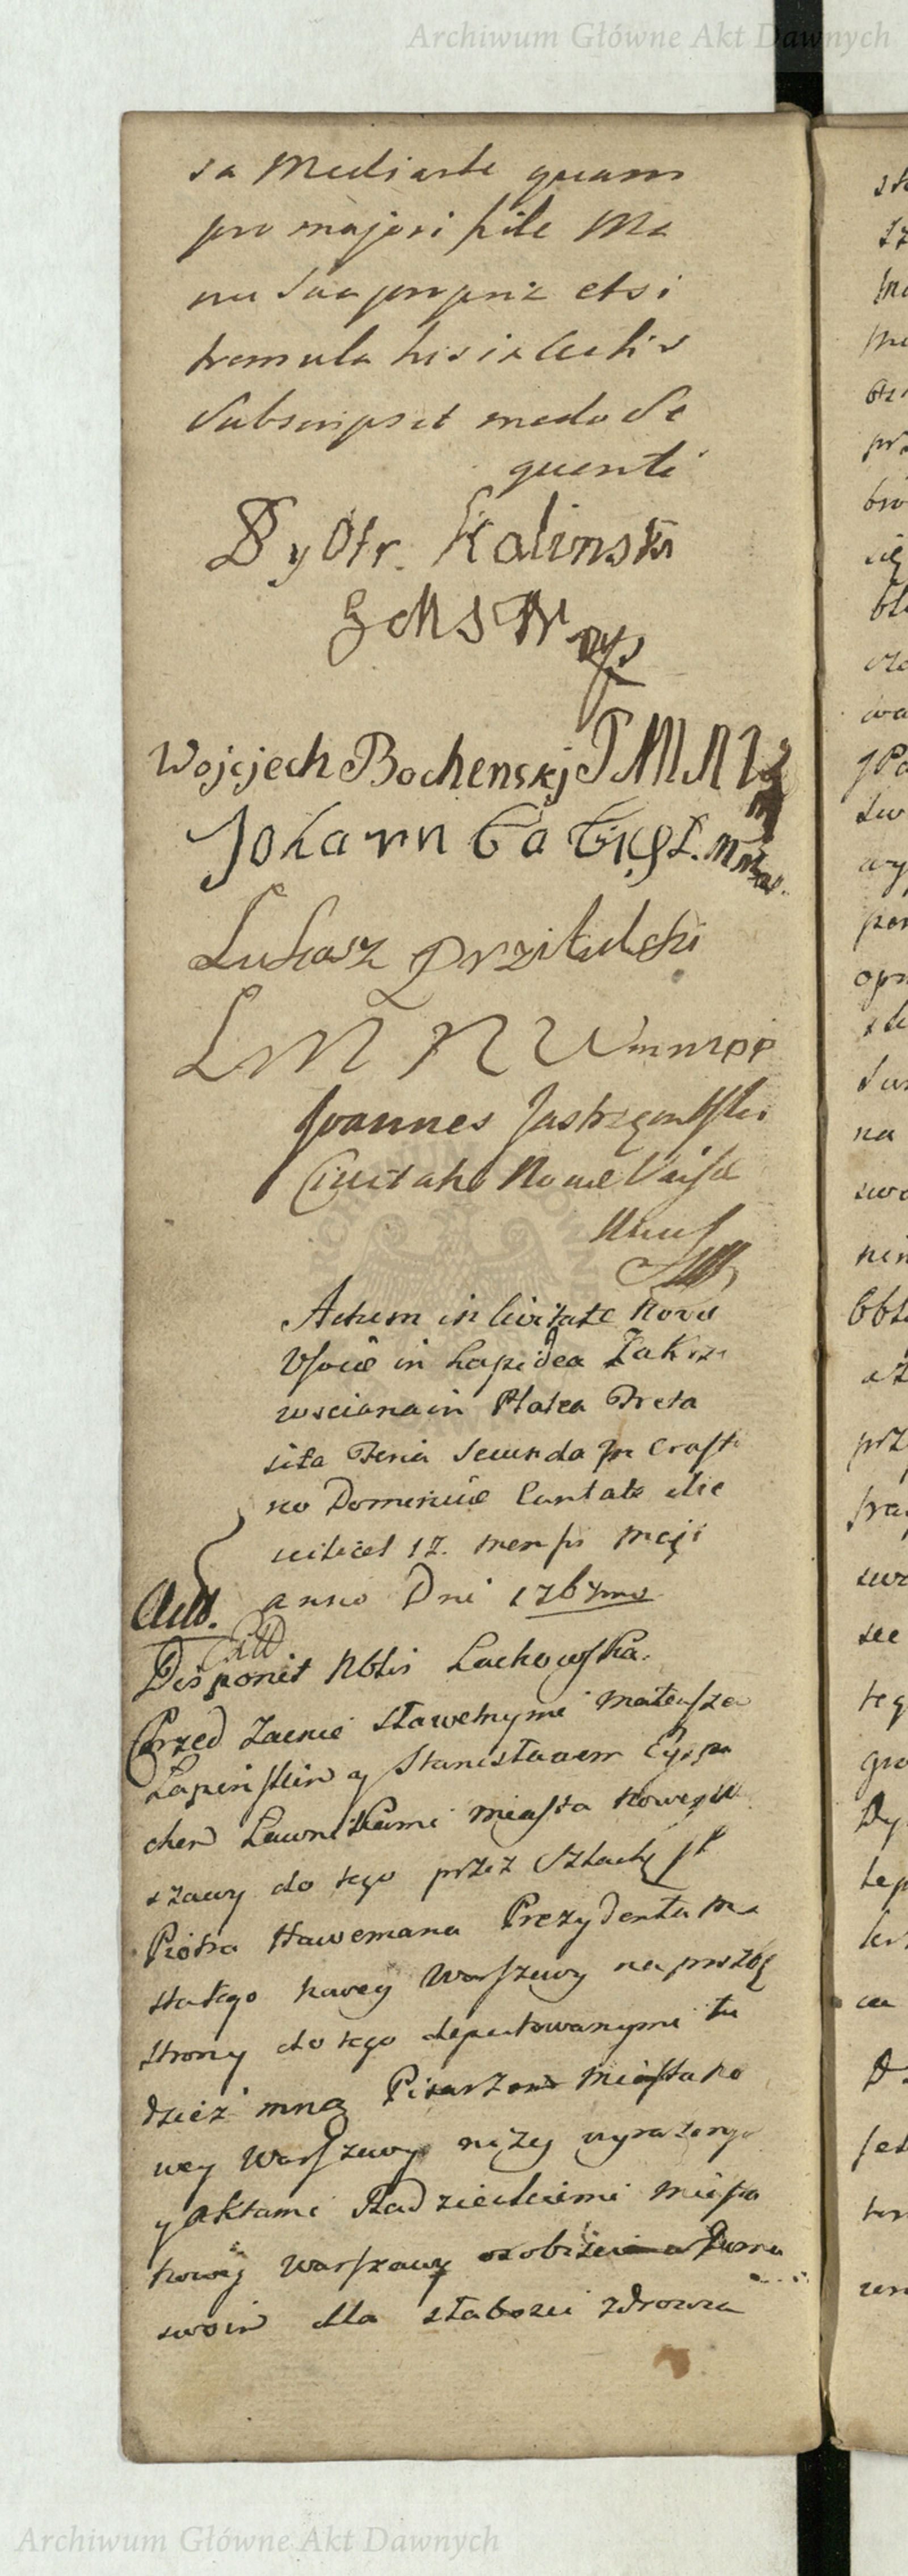 Archiwum Główne Akt Dawnych
sa Mediante quam
pro majori fide Ma
nu sua propria etsi
tremula hisce Actis
Subscripsit modo Se
quenti
Pyotr Kalinski
Wojcjech Bochenskj
Johann
Lukasz Przitulski
L M N W mmpp
Joannes Jastrzęmbski
Civitatis Novae Varsae
Actum in Civitate Nova
Vsavie in Lapidea Zakrze
wsciana in Platea Freta
sita Feria Secunda in Crasti
no Dominicae Cantate die
scilicet 17. mensis Maji
anno Dni 1767mo
Disponit Nblis Lachowska.
Przed Zacnie sławetnymi Mateusze
Łapinskim y Stanisławem
cher Ławnikami Miasta Nowey W
szawy do tego przez Szlachę
Piotra Hawemana Prezydenta Mia
sta tego Nowey Warszawy na prozbę
strony do tego deputowanymi tu
dzież mną Pisarzem Miasta No
wey Warszawy niżey wyrazonym
y Aktami Radzieckiemi Miasta
Nowey Warszawy osobiscie w Domu
swoim dla słabosci zdrowia
Archiwum Główne Akt Dawnych